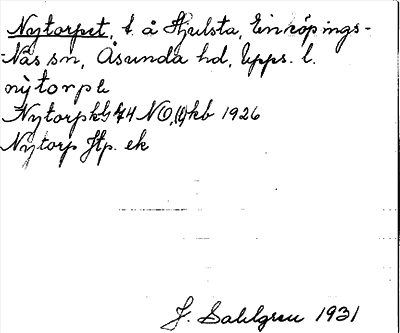 Nytorpet, t. å Hjulsta, Enköpings-
-Näs sn, Åsunda hd, Upps. l.
nỳtorpe
Nytorp kG 74 NO, (t) kb 1926
Nytorp Jtp. ek
J. Sahlgren 1931